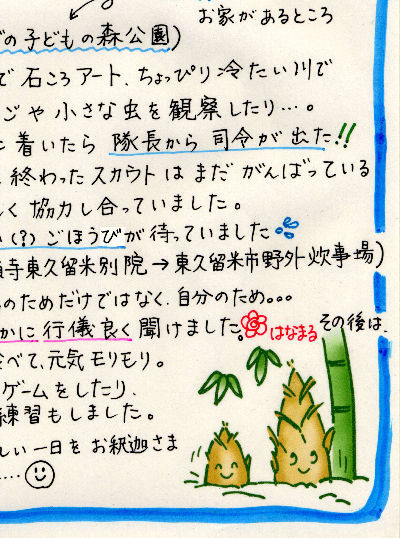 お家があるところ
の子どもの森公園)
で石ころアート、ちょっぴり冷たい川で
ごや小さな虫を観察したり…。
に着いたら 隊長から司令が出た!!
、終わったスカウトはまだがんばっている
しく協力し合っていました。
(?)ごほうびが待っていました
寺東久留米別院→東久留米市野外炊事場)
のためだけではなく、自分のため。。。
かに行儀良く聞けました。はなまる その後は、
べて、元気モリモリ。
ゲームをしたり、
練習もしました。
しい一日をお釈迦さま
……